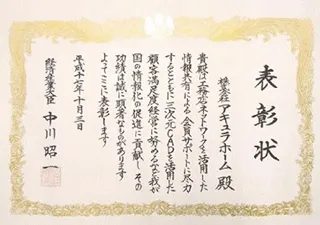 表彰状
株式会社アキュラホーム 殿
貴殿は工務店ネットワークを活用した
情報共有による会員サポートに尽力
するとともに三次元CADを活用した
顧客満足度経営に努めるなど我が
国の情報化の促進に貢献しその
功績は誠に顕著なものがあります
よってここに表彰します
平成十七年十月三日
経済産業大臣 中川 昭一